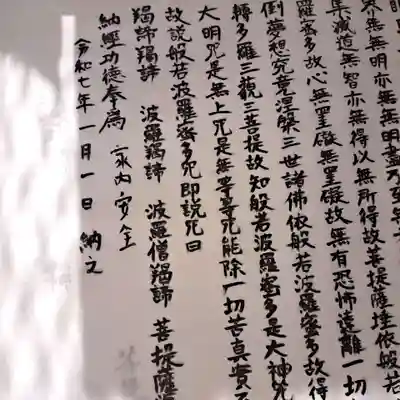 亦無無明亦無無明盡乃至無
集滅道無智亦無得以無所得故菩提薩埵依般若
羅蜜多故心無罣礙無罣礙故無有恐怖遠離一切
倒夢想究竟涅槃三世諸佛依般若波羅蜜多故得
轉多羅三藐三菩提故知般若波羅蜜多是大神咒
大明咒是無上咒是無等等咒能除一切苦真實不
故説般若波羅蜜多咒即説咒曰
羯諦羯諦 波羅羯諦 波羅僧羯諦 菩提薩
納經功德奉為 家內安全
令和七年一月一日 納之